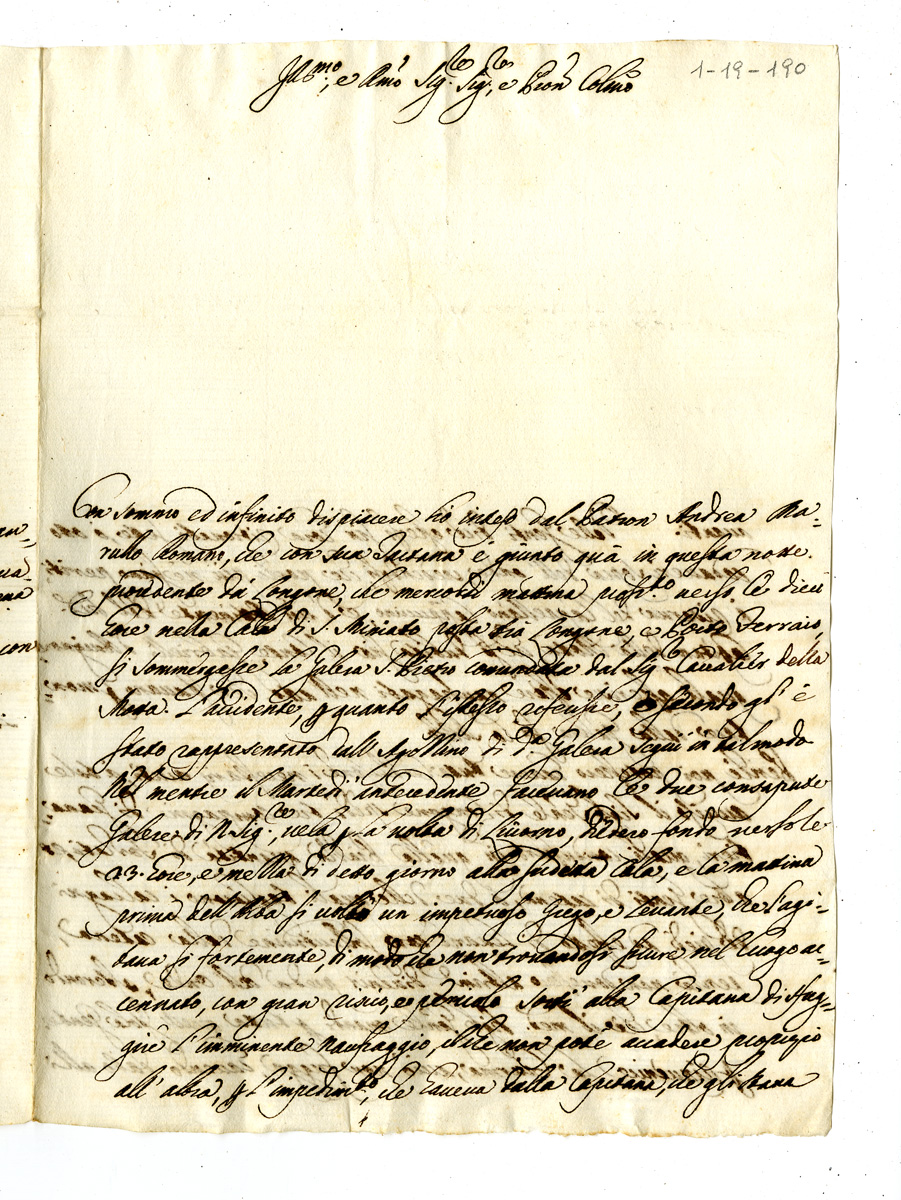 1-19-190
Ill.mo, e Rmo Sig.re Sig.re, e Pron Colmo
Con sommo ed infinito dispiacere hò inteso dal Patron Andrea Ma=
rullo Romano, che con sua Tartana è giunto quà in questa notte
procedente da Longone, che mercordì mattina pross.to verso le dieci
hore nella Cala di S. Miniato posta trà Longone, e Porto Ferraio,
si sommergesse la Galera S. Pietro comandata dal Sig. Cavalier della
Mota. L'accidente, p quanto l'istesso riferisce, e secondo gl'è
stato rappresentato dall'Agozzino di da Galera seguì in tal modo
Nel mentre il Martedì antecedente facevano le due consapute
Galere di N. Sig.re, vela p la volta di Livorno, diedero fondo verso le
23. hore, e mezza di detto giorno alla sudetta Cala, e la mattina
prima dell'Alba si voltò un impetuoso Grego, e Levante, che l'agi=
tava sì fortemente, di modo che non trovandosi sicure nel luogo ac=
cennato, con gran risico, e pericolo sortì alla Capitana di sfug=
gire l'imminente naufraggio, il che non potè accadere propizio
all'altra, p l'impedim.to, che haveva dalla Capitana, che gli stava
an=
ua=
ena
con